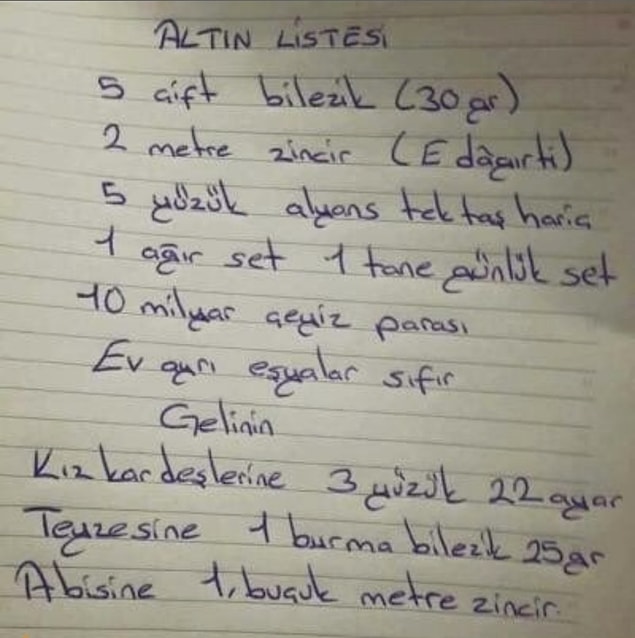 ALTIN LİSTESİ
5 çift bilezik (30 gr)
2 metre zincir (E dâğırti)
5 yüzük alyans tek taş hariç
1 ağır set 1 tane günlük set
10 milyar çeyiz parası
Ev ayrı eşyalar sıfır
Gelinin
Kız kardeşlerine 3 yüzük 22 ayar
Teyzesine 1 burma bilezik 25gr
Abisine 1, buçuk metre zincir.